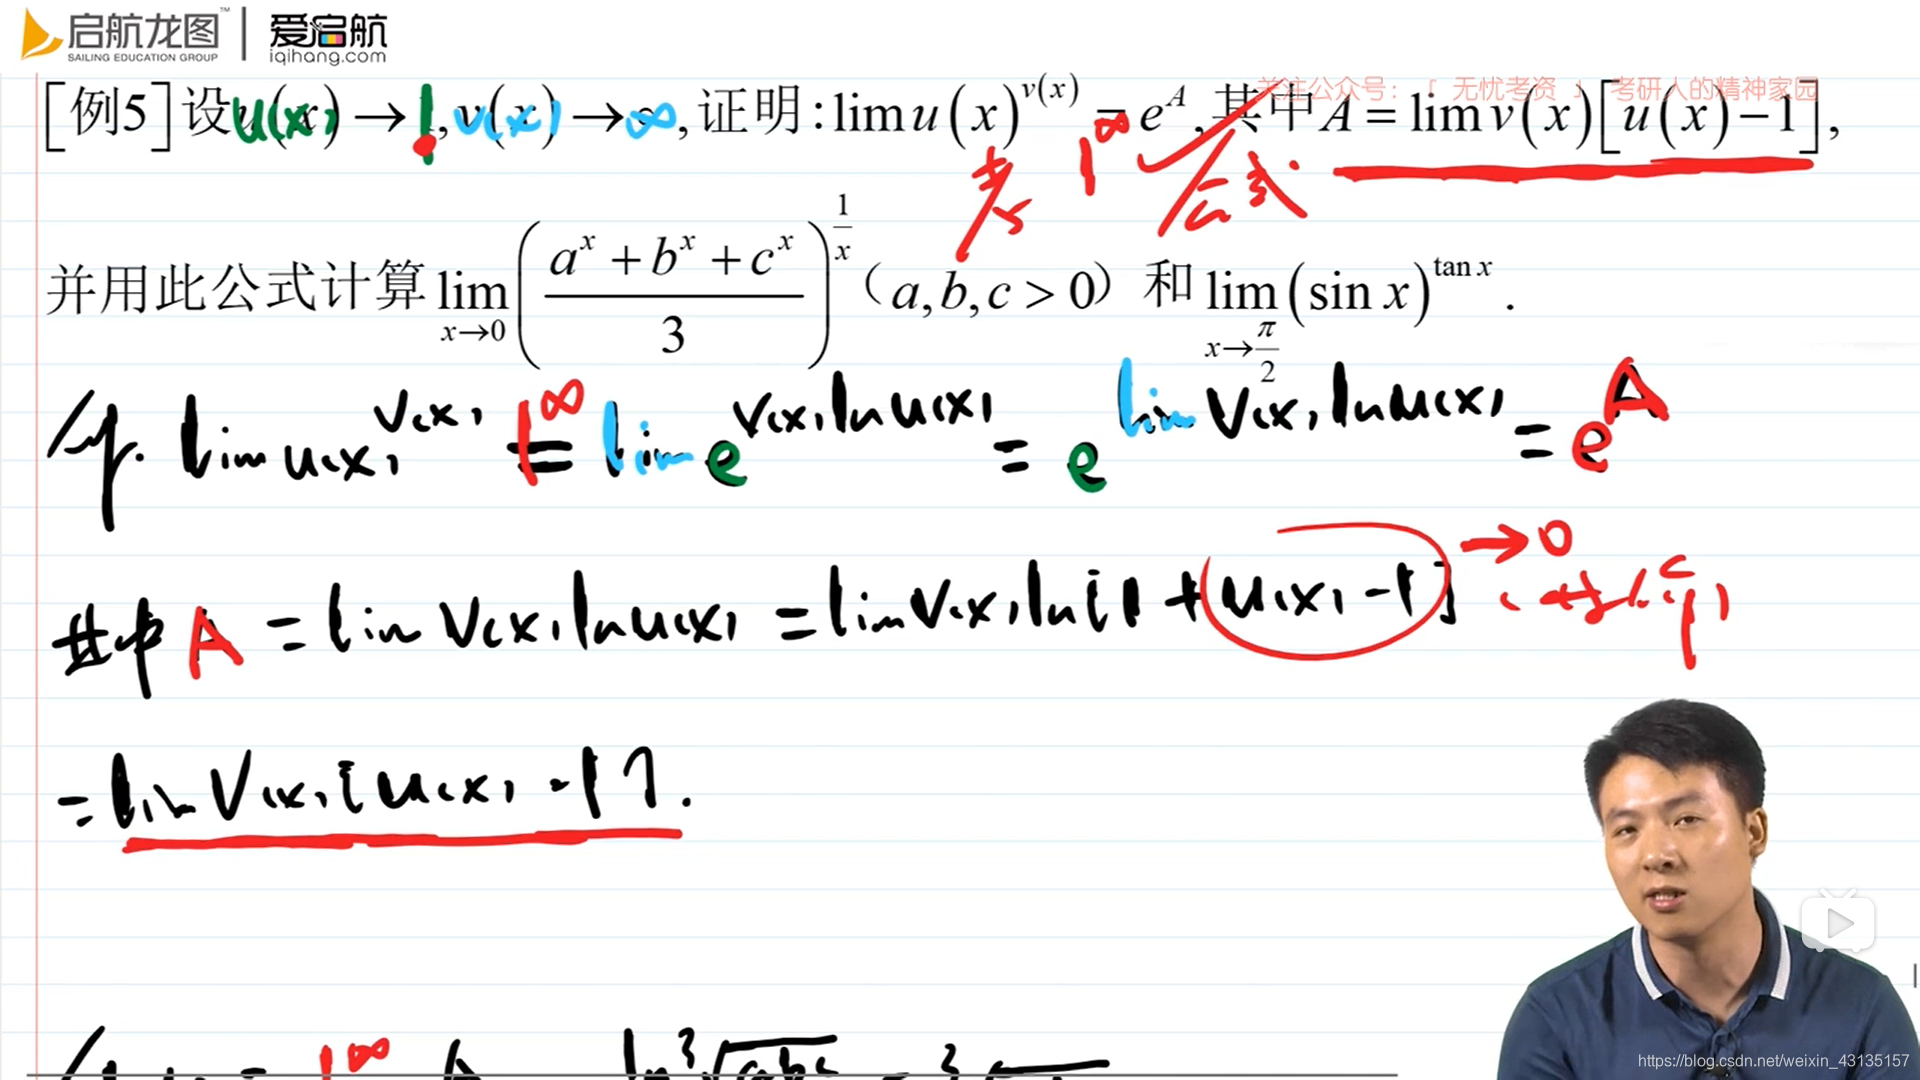 启航龙图™ | 爱启航
SAILING EDUCATION GROUP iqihang.com
关注公众号：「 无忧考资 」 考研人的精神家园
[例5]设u(x)→1,v(x)→∞,证明:lim u(x)^{v(x)} = e^A,其中A=lim v(x)[u(x)−1],
考 1^∞ 公式
并用此公式计算lim_{x→0}((a^x+b^x+c^x)/3)^{1/x}（a,b,c>0）和lim_{x→π/2}(sin x)^{tan x}.
lim u(x)^{v(x)} 1^∞ = lim e^{v(x)ln u(x)} = e^{lim v(x)ln u(x)} = e^A
其中 A = lim v(x)ln u(x) = lim v(x)ln[1+u(x)-1] →0
= lim v(x)[u(x)-1].
1^∞
https://blog.csdn.net/weixin_43135157